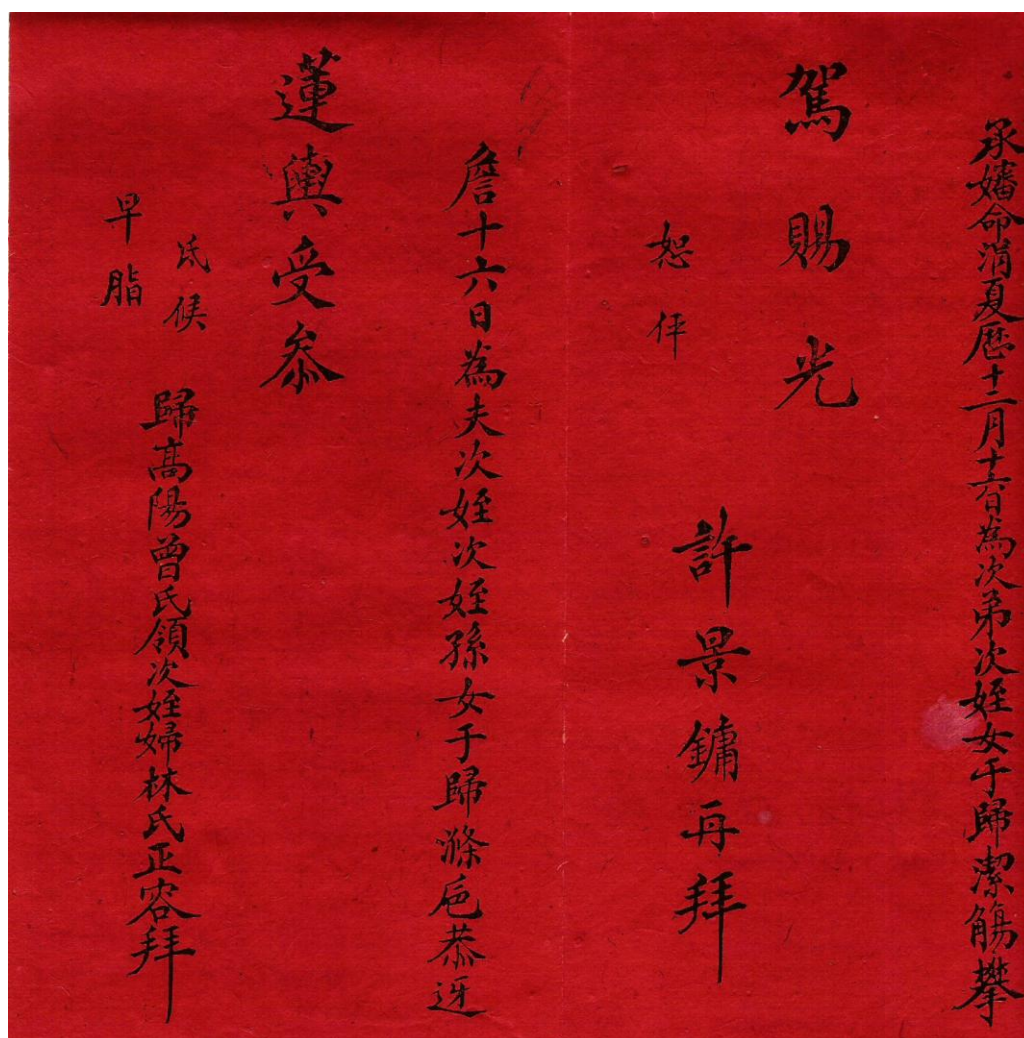 承嬸命涓夏曆十二月十六日為次弟次姪女于歸潔觴攀
駕賜光
恕伻
許景鏞再拜
詹十六日為夫次姪次姪孫女于歸滌卮恭迓
蓮輿受叅
氏候
早脂
歸高陽曾氏領次姪婦林氏正容拜